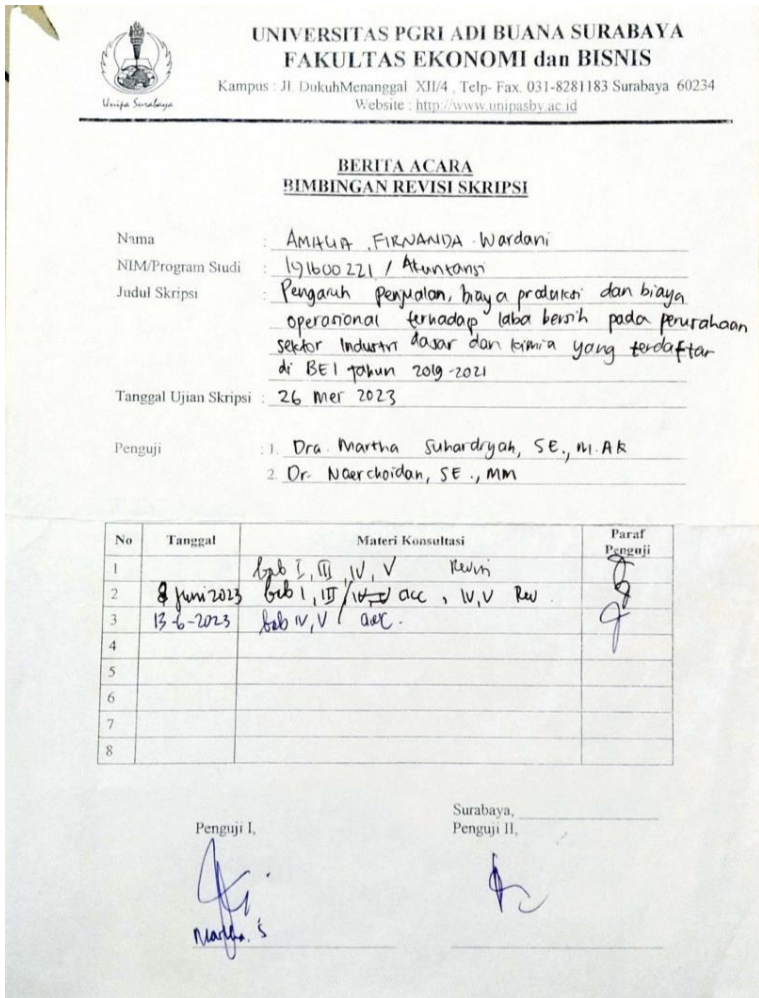 UNIVERSITAS PGRI ADI BUANA SURABAYA
FAKULTAS EKONOMI dan BISNIS
Kampus : Jl. DukuhMenanggal XII/4 , Telp- Fax. 031-8281183 Surabaya 60234
Website : http://www.unipasby.ac.id
Unipa Surabaya
BERITA ACARA
BIMBINGAN REVISI SKRIPSI
Nama : AMALIA FIRNANDA Wardani
NIM/Program Studi : 191600221 / Akuntansi
Judul Skripsi : Pengaruh penjualan, biaya produksi dan biaya
operasional terhadap laba bersih pada perusahaan
sektor Industri dasar dan kimia yang terdaftar
di BEI tahun 2019-2021
Tanggal Ujian Skripsi : 26 Mei 2023
Penguji : 1. Dra. Martha Suhardiyah, SE., M.AK
2. Dr. Noerchoidah, SE., MM
No Tanggal Materi Konsultasi Paraf Penguji
1 bab I, III, IV, V Revisi
2 8 Juni 2023 bab I, III acc, IV, V Rev
3 13-6-2023 bab IV, V acc.
4
5
6
7
8
Surabaya,
Penguji I, Penguji II,
Martha. S